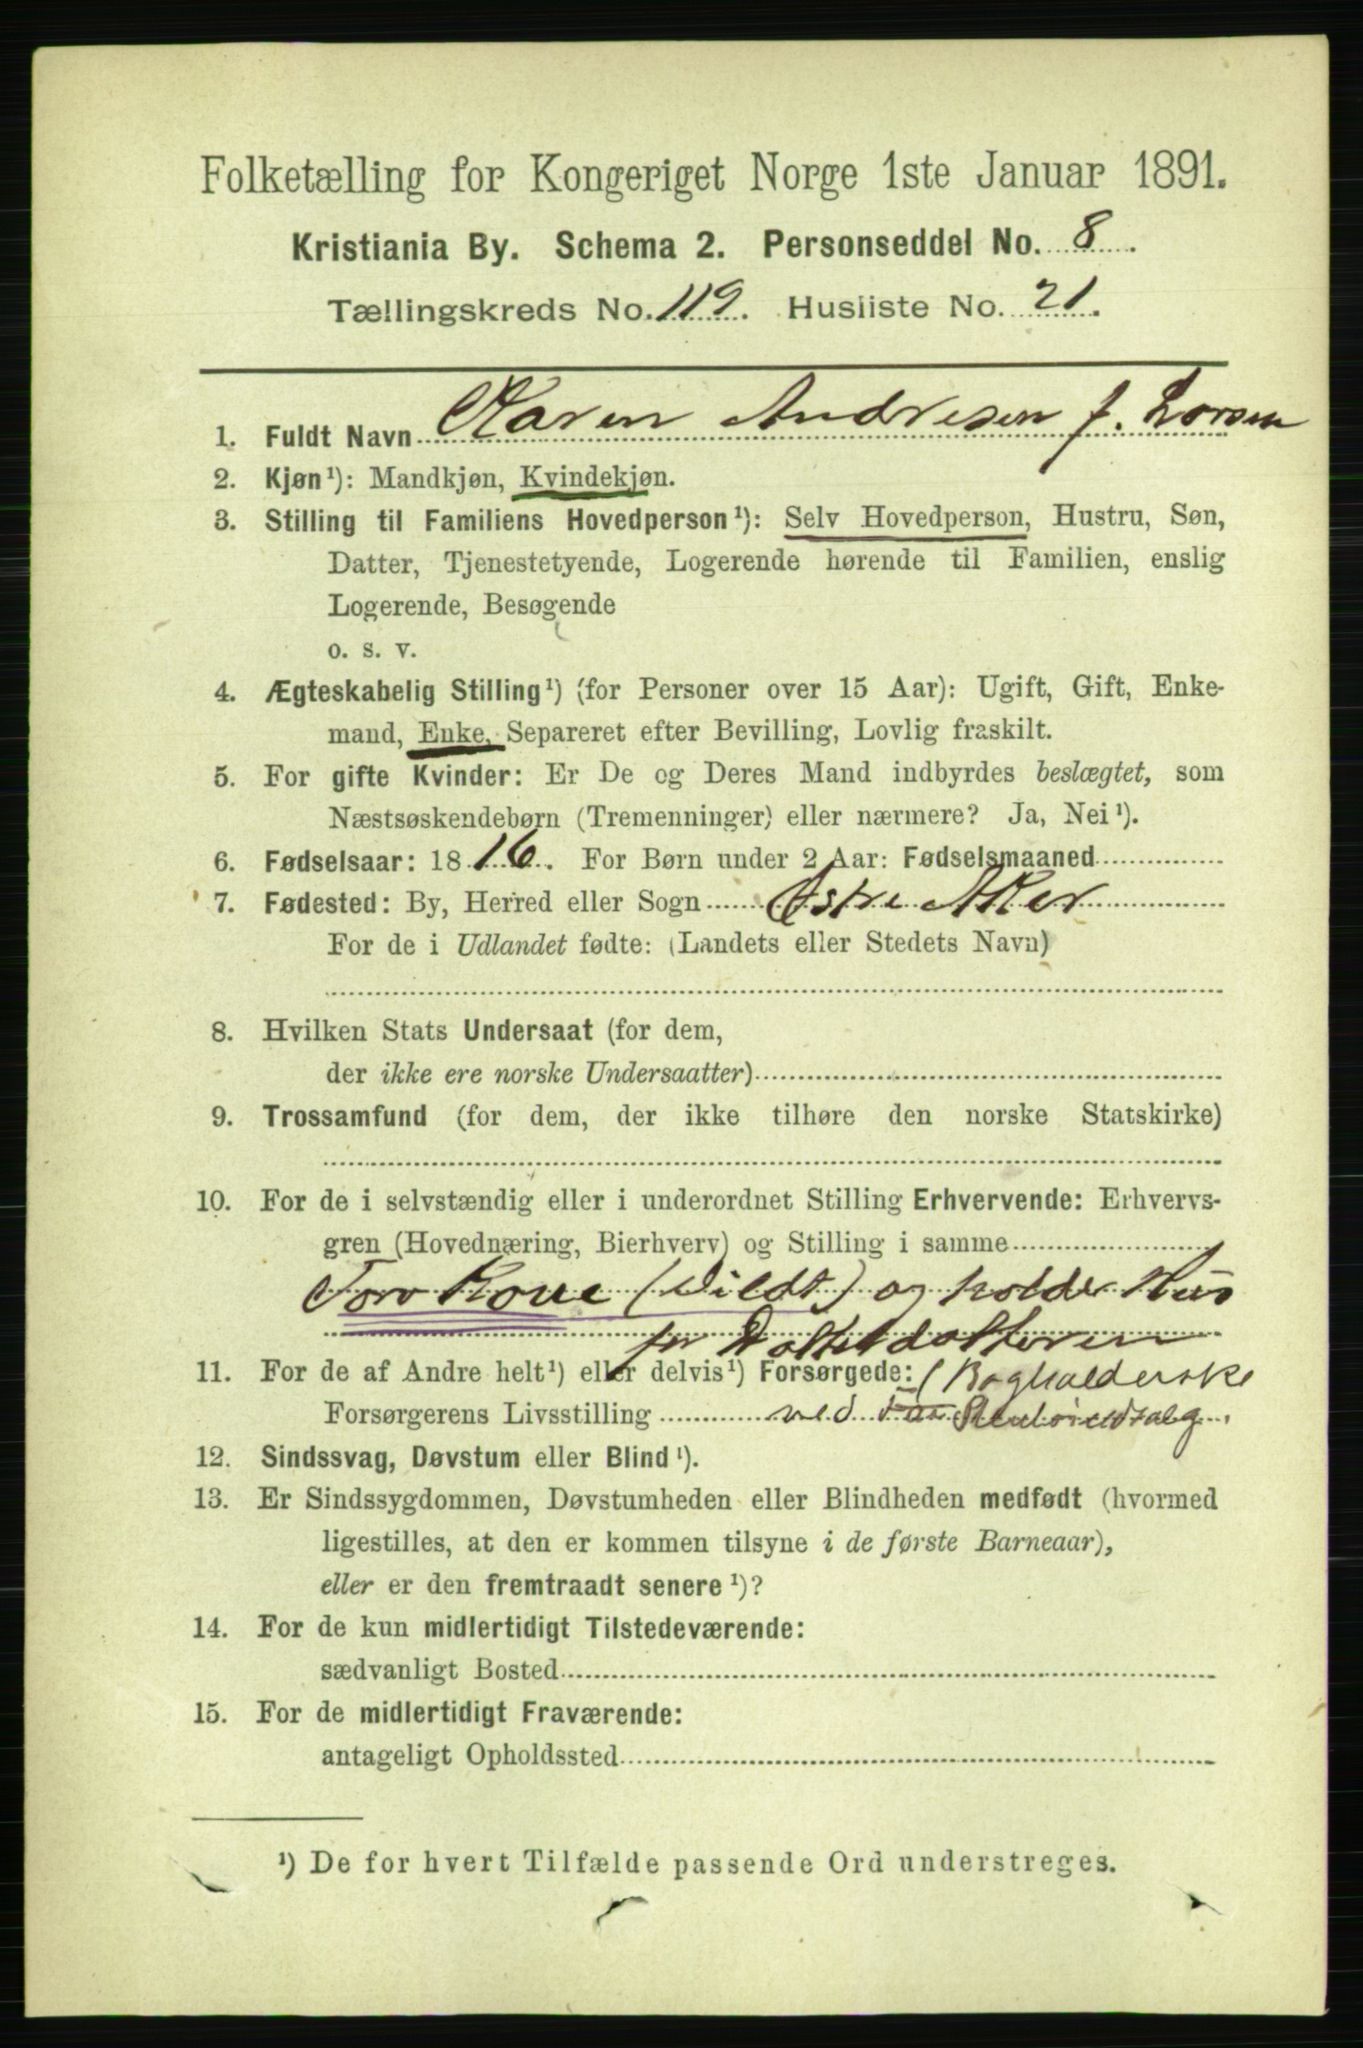 Folketælling for Kongeriget Norge 1ste Januar 1891.
Kristiania By. Schema 2. Personseddel No. 8.
Tællingskreds No. 119. Husliste No. 21.
1. Fuldt Navn Karen Andresen f. Larsen
2. Kjøn¹): Mandkjøn, Kvindekjøn.
3. Stilling til Familiens Hovedperson¹): Selv Hovedperson, Hustru, Søn,
Datter, Tjenestetyende, Logerende hørende til Familien, enslig
Logerende, Besøgende
o. s. v.
4. Ægteskabelig Stilling¹) (for Personer over 15 Aar): Ugift, Gift, Enke-
mand, Enke, Separeret efter Bevilling, Lovlig fraskilt.
5. For gifte Kvinder: Er De og Deres Mand indbyrdes beslægtet, som
Næstsøskendebørn (Tremenninger) eller nærmere? Ja, Nei¹).
6. Fødselsaar: 1816. For Børn under 2 Aar: Fødselsmaaned
7. Fødested: By, Herred eller Sogn Østre Aker
For de i Udlandet fødte: (Landets eller Stedets Navn)
8. Hvilken Stats Undersaat (for dem,
der ikke ere norske Undersaatter)
9. Trossamfund (for dem, der ikke tilhøre den norske Statskirke)
10. For de i selvstændig eller i underordnet Stilling Erhvervende: Erhvervs-
gren (Hovednæring, Bierhverv) og Stilling i samme
Torvkone (Vildt) og holder Hus
for Datterdatteren
11. For de af Andre helt¹) eller delvis¹) Forsørgede: (Bogholderske
Forsørgerens Livsstilling ved
12. Sindssvag, Døvstum eller Blind¹).
13. Er Sindssygdommen, Døvstumheden eller Blindheden medfødt (hvormed
ligestilles, at den er kommen tilsyne i de første Barneaar),
eller er den fremtraadt senere¹)?
14. For de kun midlertidigt Tilstedeværende:
sædvanligt Bosted
15. For de midlertidigt Fraværende:
antageligt Opholdssted
¹) De for hvert Tilfælde passende Ord understreges.